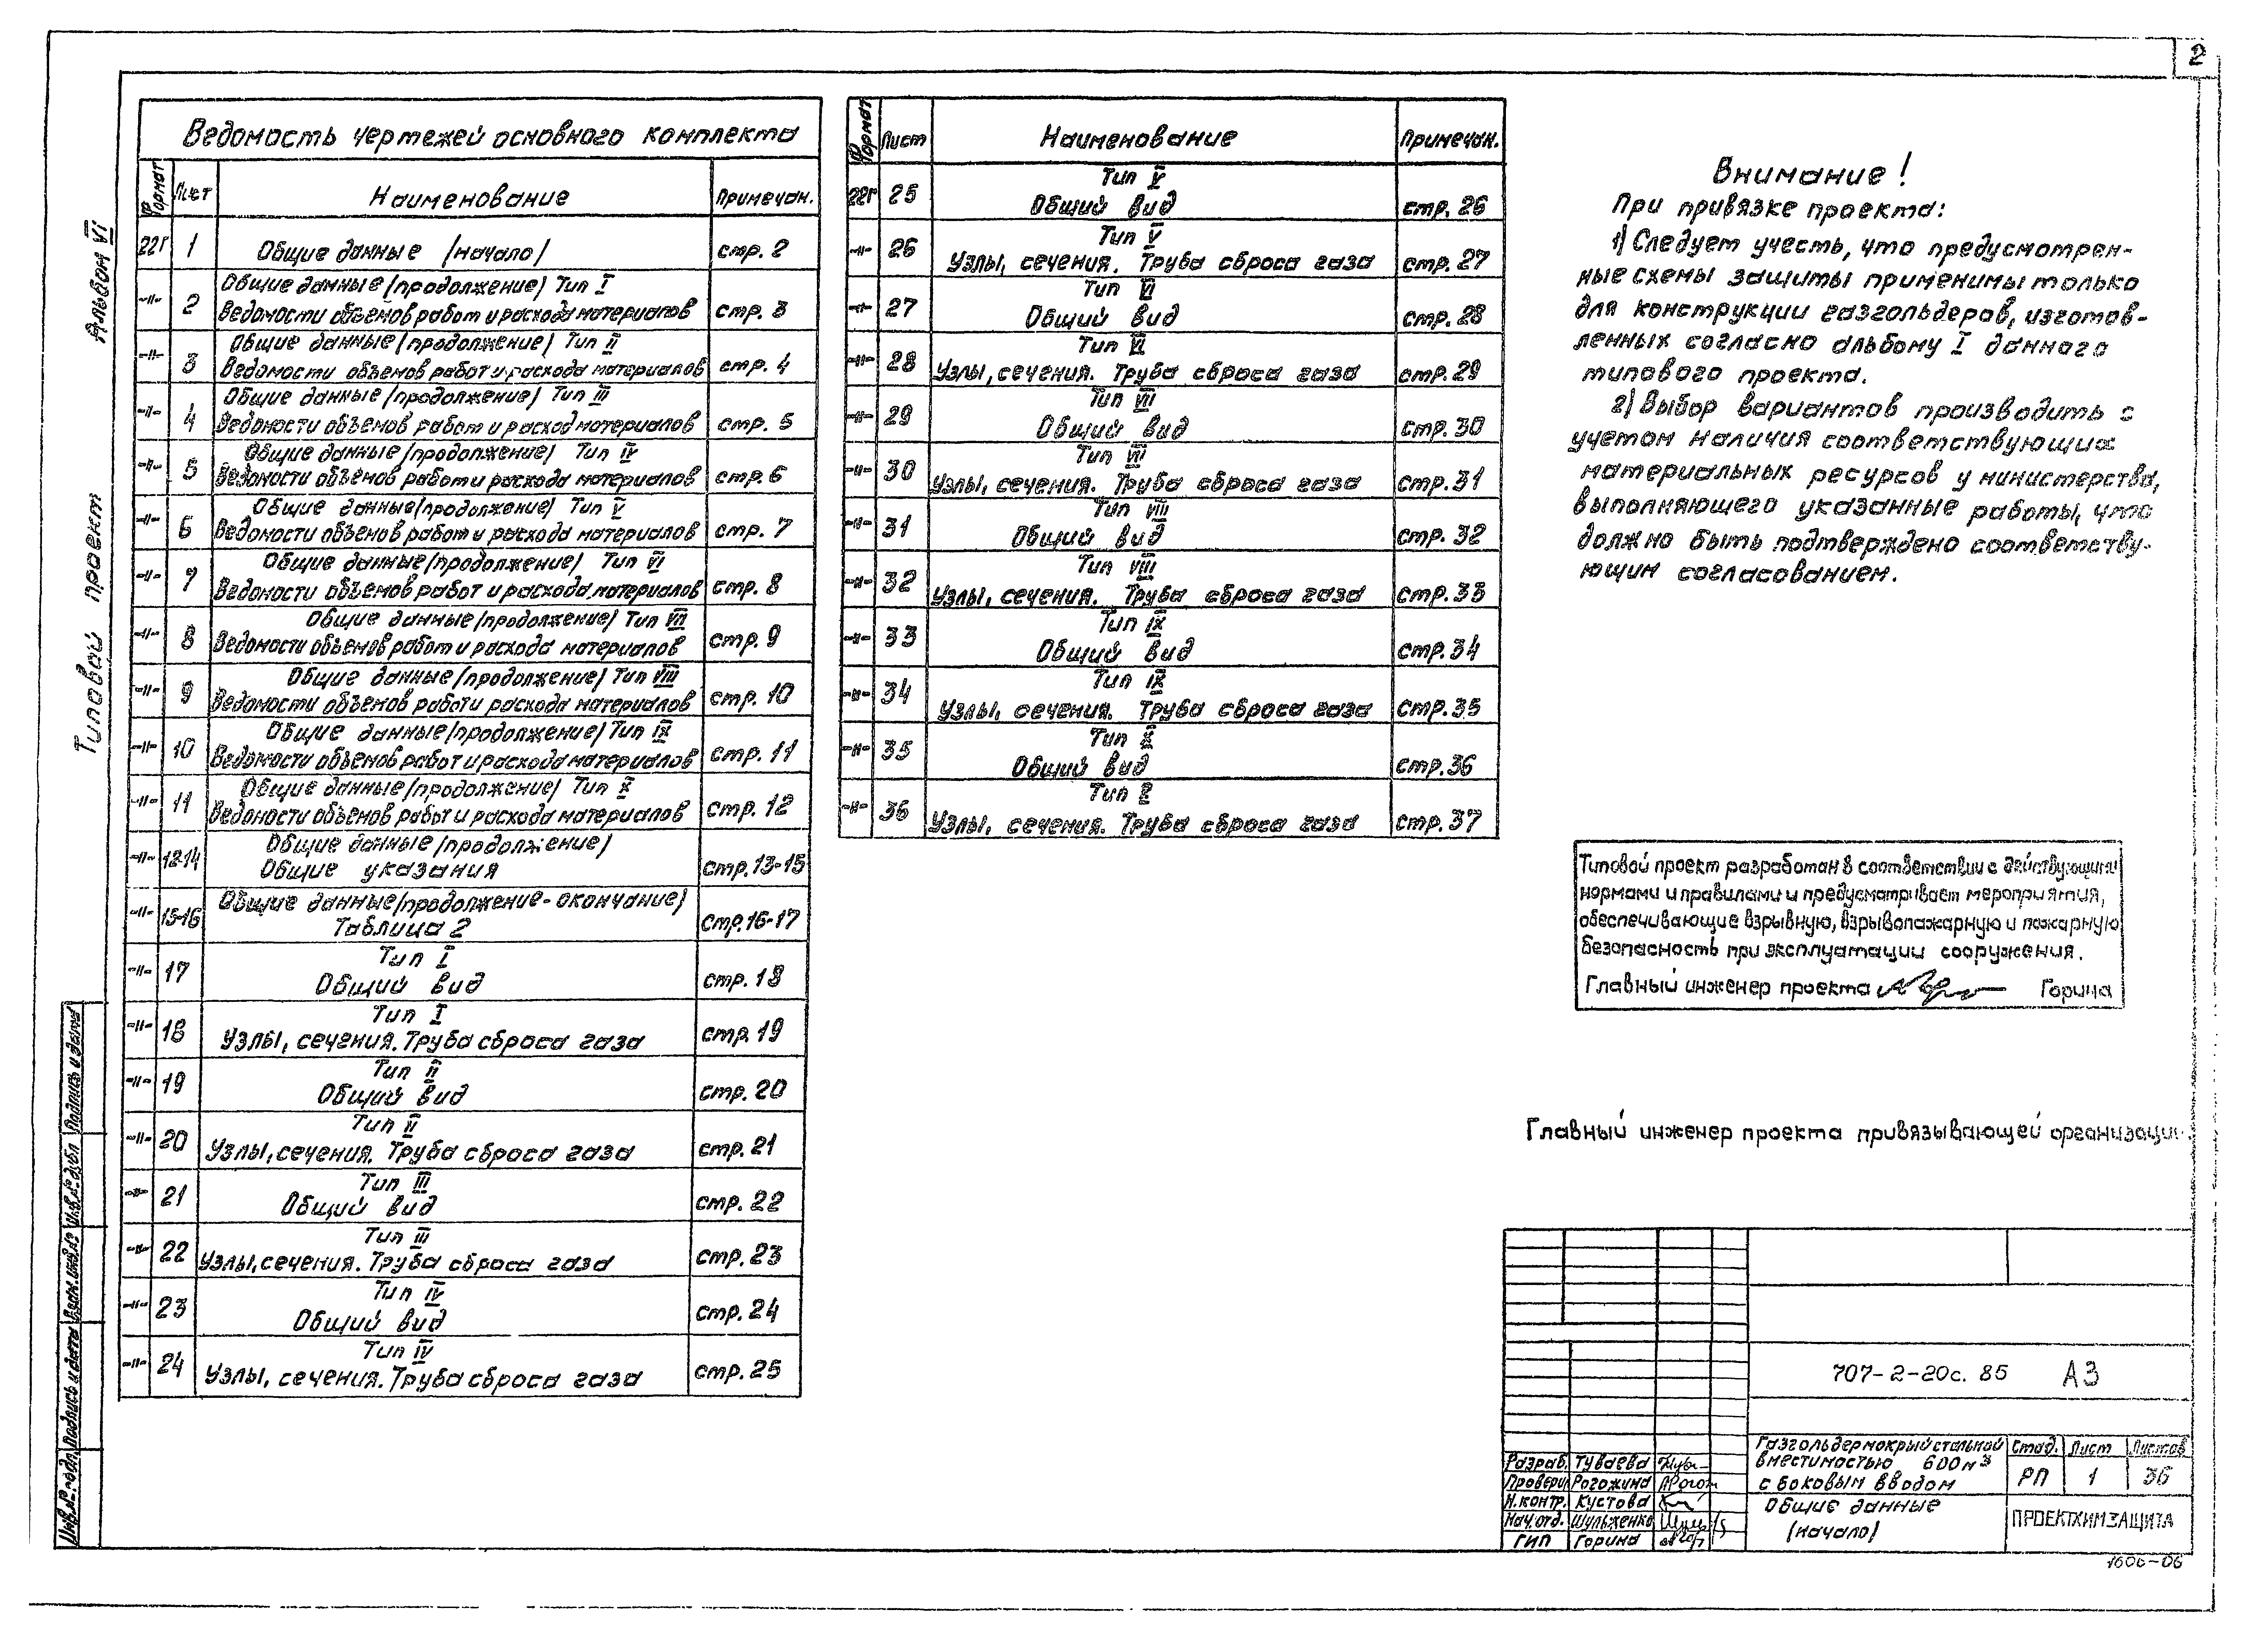 2
Альбом VI
Типовой проект
Ведомость чертежей основного комплекта
Формат Лист Наименование Примечан.
22г 1 Общие данные /начало/ стр. 2
-"- 2 Общие данные /продолжение/ Тип I
Ведомости объемов работ и расхода материалов стр. 3
-"- 3 Общие данные /продолжение/ Тип II
Ведомости объемов работ и расхода материалов стр. 4
-"- 4 Общие данные /продолжение/ Тип III
Ведомости объемов работ и расход материалов стр. 5
-"- 5 Общие данные /продолжение/ Тип IV
Ведомости объемов работ и расхода материалов стр. 6
-"- 6 Общие данные /продолжение/ Тип V
Ведомости объемов работ и расхода материалов стр. 7
-"- 7 Общие данные /продолжение/ Тип VI
Ведомости объемов работ и расхода материалов стр. 8
-"- 8 Общие данные /продолжение/ Тип VII
Ведомости объемов работ и расхода материалов стр. 9
-"- 9 Общие данные /продолжение/ Тип VIII
Ведомости объемов работ и расхода материалов стр. 10
-"- 10 Общие данные /продолжение/ Тип IX
Ведомости объемов работ и расхода материалов стр. 11
-"- 11 Общие данные /продолжение/ Тип X
Ведомости объемов работ и расхода материалов стр. 12
-"- 12-14 Общие данные /продолжение/
Общие указания стр. 13-15
-"- 15-16 Общие данные /продолжение - окончание/
Таблица 2 стр. 16-17
-"- 17 Тип I
Общий вид стр. 18
-"- 18 Тип I
Узлы, сечения. Труба сброса газа стр. 19
-"- 19 Тип II
Общий вид стр. 20
-"- 20 Тип II
Узлы, сечения. Труба сброса газа стр. 21
-"- 21 Тип III
Общий вид стр. 22
-"- 22 Тип III
Узлы, сечения. Труба сброса газа стр. 23
-"- 23 Тип IV
Общий вид стр. 24
-"- 24 Тип IV
Узлы, сечения. Труба сброса газа стр. 25
Формат Лист Наименование Примечан.
22г 25 Тип V
Общий вид стр. 26
-"- 26 Тип V
Узлы, сечения. Труба сброса газа стр. 27
-"- 27 Тип VI
Общий вид стр. 28
-"- 28 Тип VI
Узлы, сечения. Труба сброса газа стр. 29
-"- 29 Тип VII
Общий вид стр. 30
-"- 30 Тип VII
Узлы, сечения. Труба сброса газа стр. 31
-"- 31 Тип VIII
Общий вид стр. 32
-"- 32 Тип VIII
Узлы, сечения. Труба сброса газа стр. 33
-"- 33 Тип IX
Общий вид стр. 34
-"- 34 Тип IX
Узлы, сечения. Труба сброса газа стр. 35
-"- 35 Тип X
Общий вид стр. 36
-"- 36 Тип X
Узлы, сечения. Труба сброса газа стр. 37
Внимание!
При привязке проекта:
1) Следует учесть, что предусмотрен-
ные схемы защиты применимы только
для конструкции газгольдеров, изготов-
ленных согласно альбому I данного
типового проекта.
2) Выбор вариантов производить с
учетом наличия соответствующих
материальных ресурсов у министерства,
выполняющего указанные работы, что
должно быть подтверждено соответству-
ющим согласованием.
Типовой проект разработан в соответствии с действующими
нормами и правилами и предусматривает мероприятия,
обеспечивающие взрывную, взрывопажарную и пожарную
безопасность при эксплуатации сооружения.
Главный инженер проекта Горина
Главный инженер проекта привязывающей организации
707-2-20с. 85 А3
Разраб. Туваева
Провери Рогожина
Н. контр. Кустова
Нач. отд. Шульженко
ГИП Горина
Газгольдер мокрый стальной
вместимостью 600 м³
с боковым вводом
Стад. Лист Листов
РП 1 36
Общие данные
/начало/
ПРОЕКТХИМЗАЩИТА
1600-06
Инв. № подл. Подпись и дата Взам. инв. № Инв. № дубл. Подпись и дата